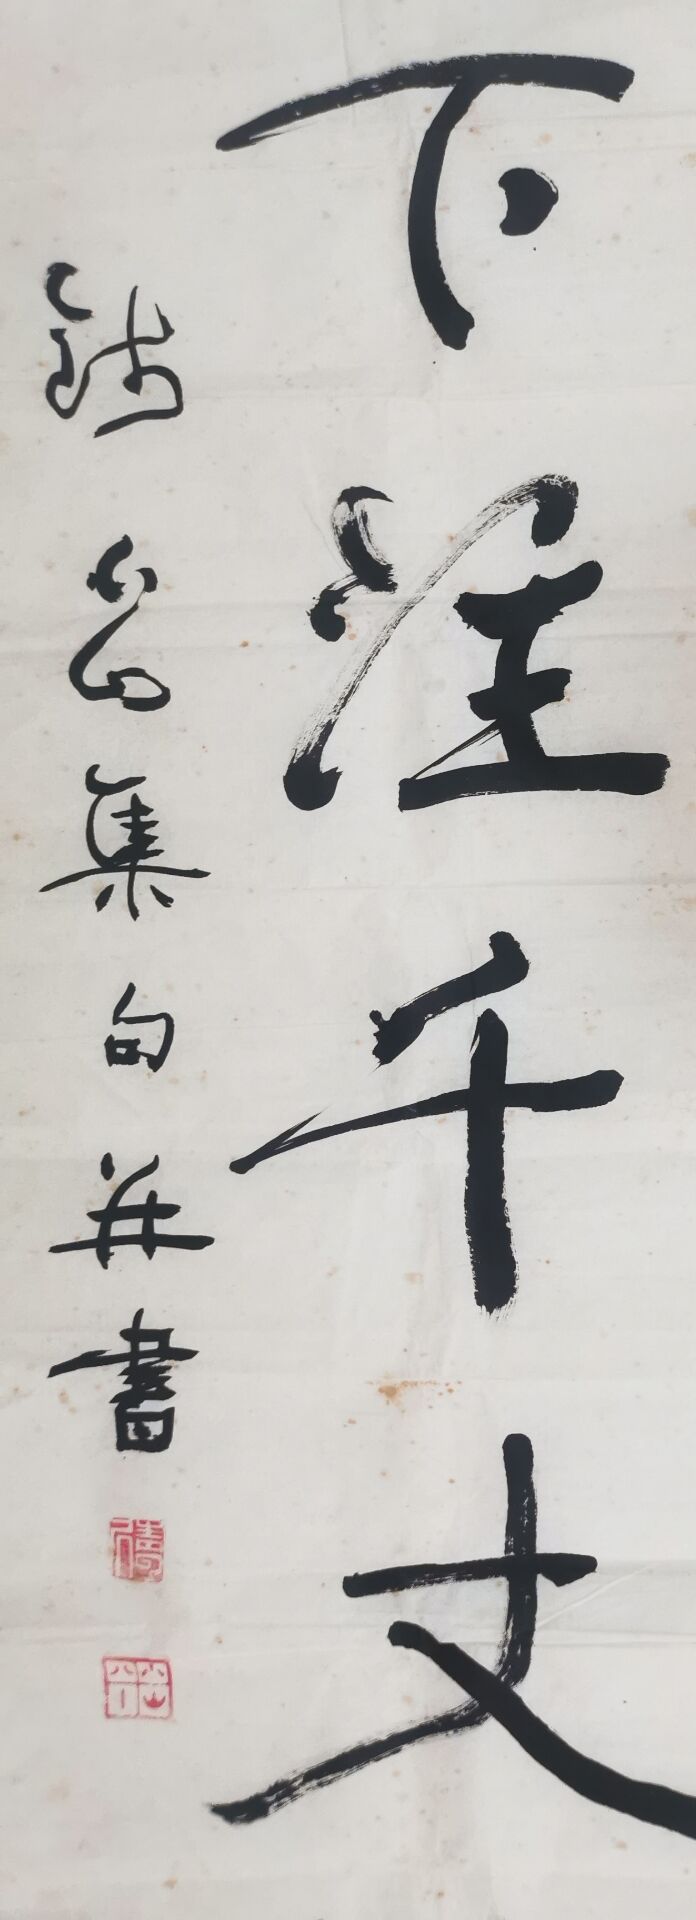 下注千丈
集句并書